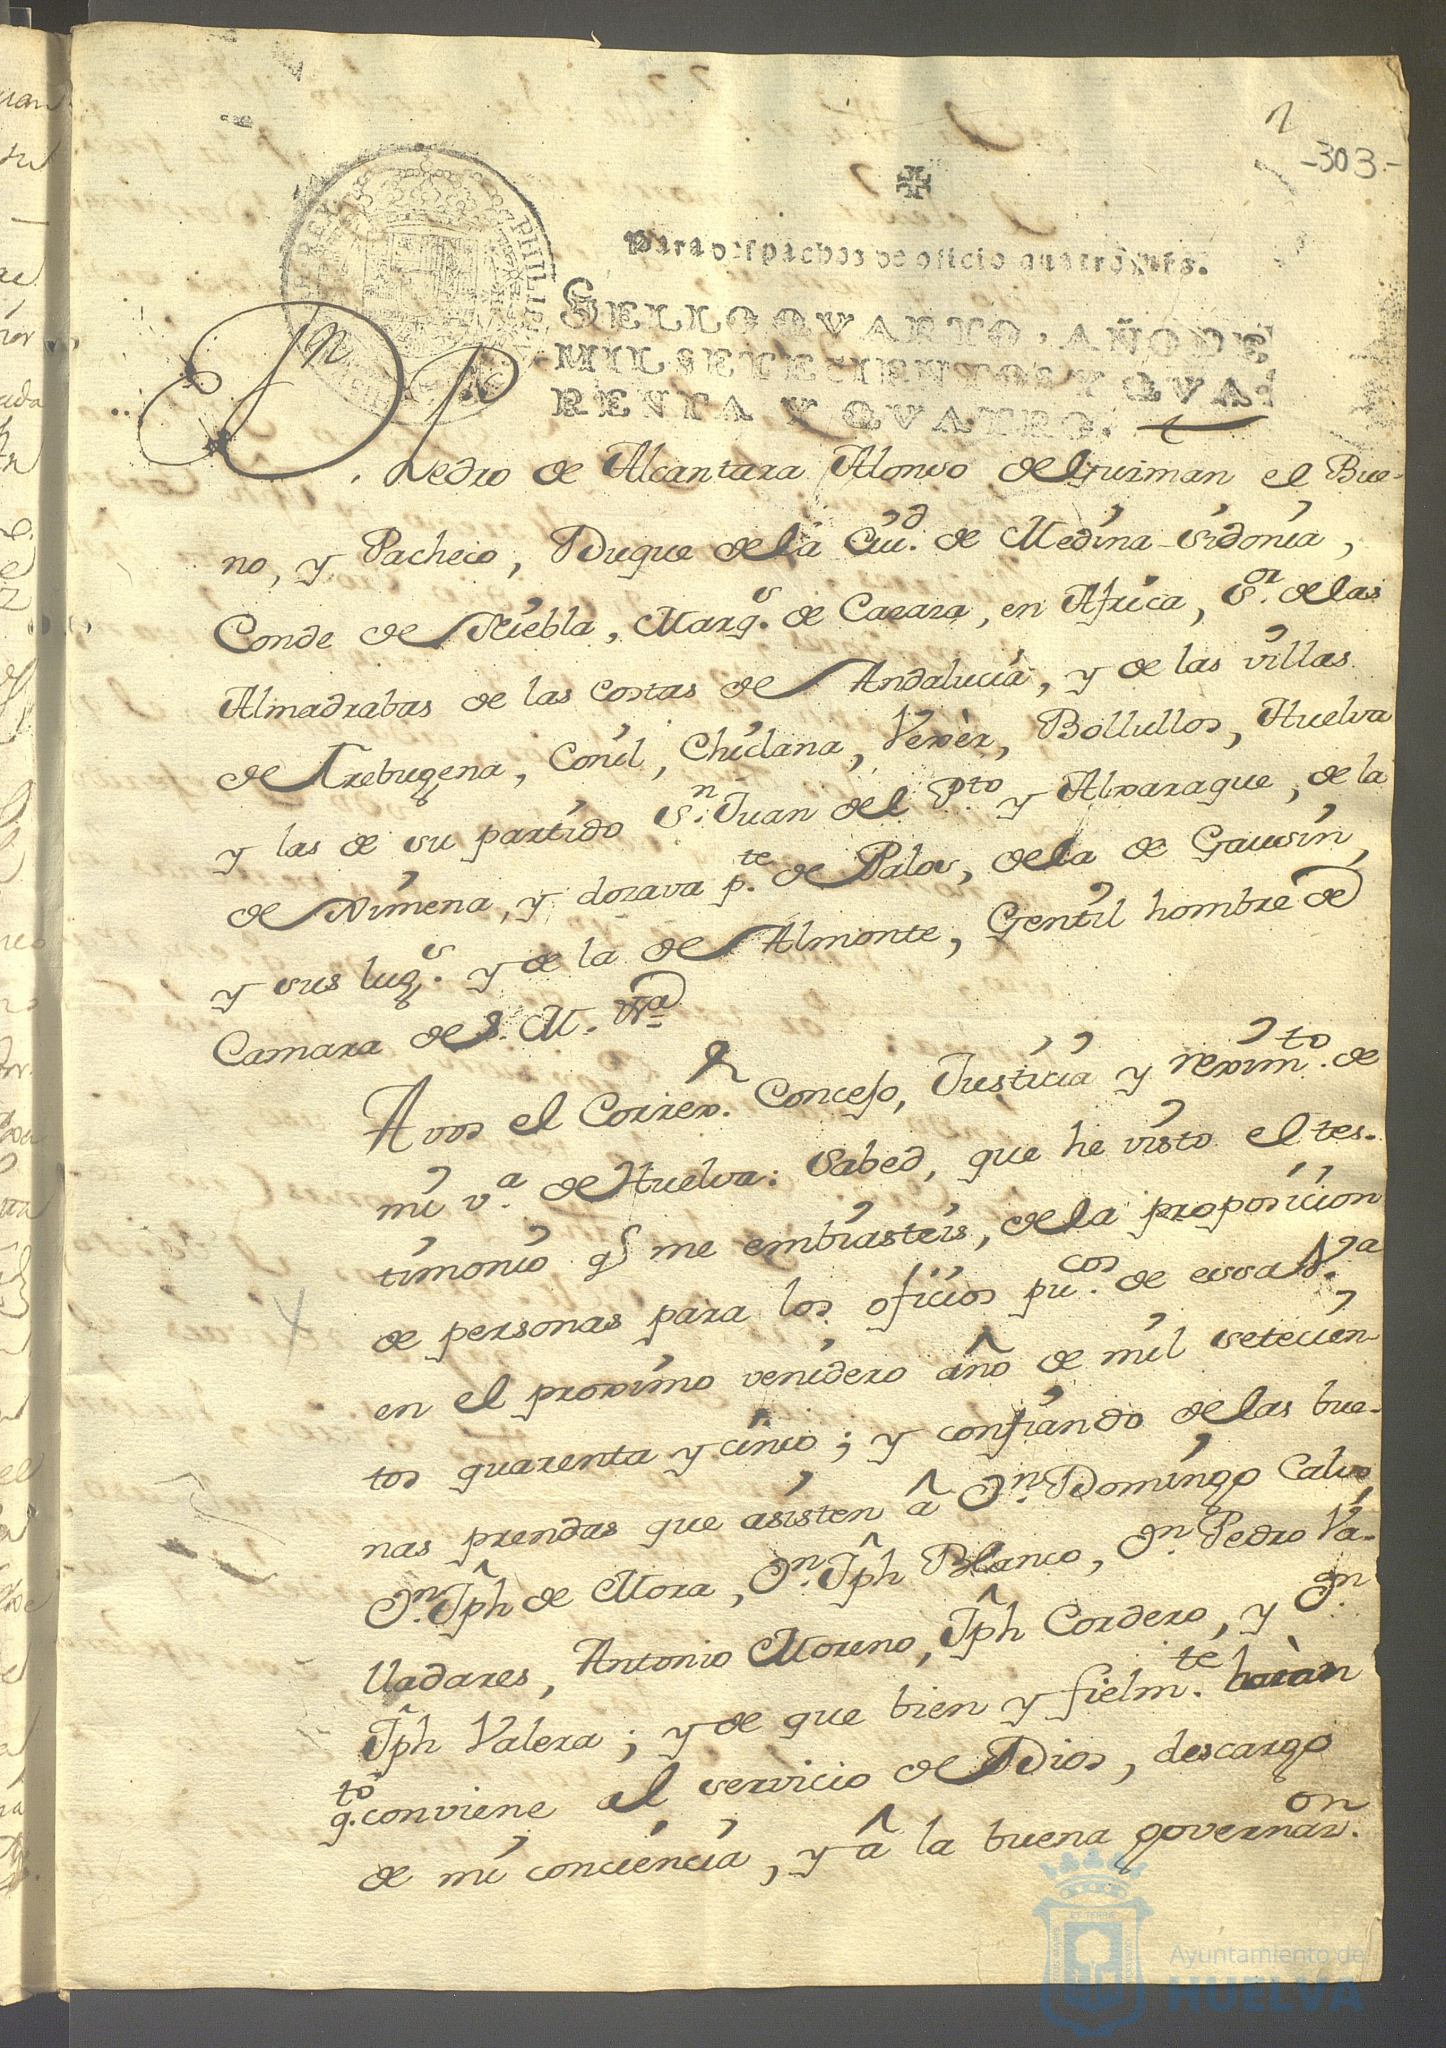 -303-
Para despachos de oficio quatro mrs.
SELLO QVARTO, AÑO DE
MIL SETECIENTOS Y QVA-
RENTA Y QVATRO.
Dn Pedro de Alcantara Alonso de Guzman el Bue-
no, y Pacheco, Duque de la Ciud. de Medina Sidonia,
Conde de Niebla, Marqs. de Cazaza, en Africa, Sor. de las
Almadrabas de las costas de Andalucia, y de las villas
de Trebugena, Conil, Chiclana, Vexèr, Bollullos, Huelva
y las de su partido Sn. Juan del Pto y Alxaraque, de la
de Ximena, y dozava pte. de Palos, de la de Gausin,
y sus lugs. y de la de Almonte, Gentil hombre de
Camara de S. M. &a
A vos el Correxr. Concejo, Justicia y reximto. de
mi va. de Huelva: Sabed, que he visto el tes-
timonio q me embiasteis, de la proposicion
de personas para los oficios pucos. de essa Va.
en el proximo venidero año de mil setecien-
tos quarenta y cinco; y confiando de las bue-
nas prendas que asisten â Dn. Domingo Calvo,
Dn. Jph de Mora, Dn. Jph Blanco, Dn. Pedro Va-
lladares, Antonio Moreno, Jph Cordero, y Dn.
Jph Valera; y de que bien y fielmte. haràn
qto. conviene al servicio de Dios, descargo
de mi conciencia, y â la buena governazon.
Ayuntamiento de
HUELVA